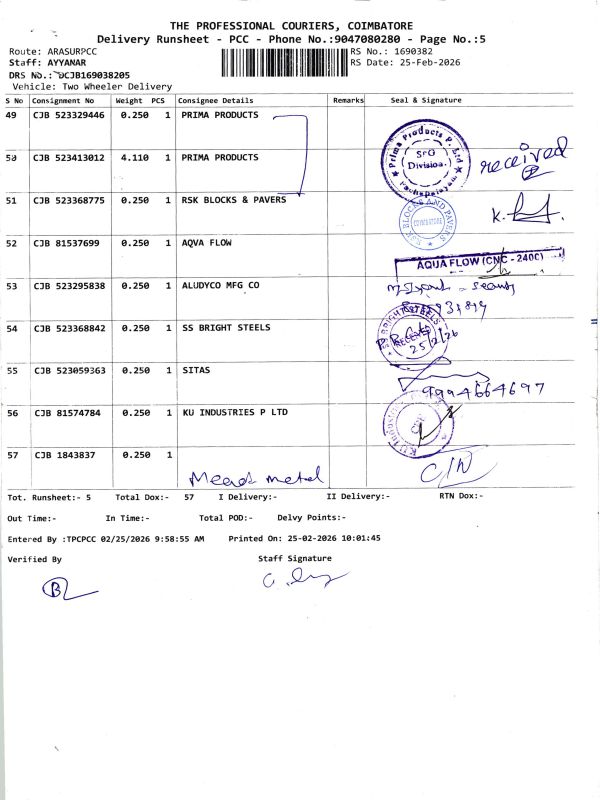 THE PROFESSIONAL COURIERS, COIMBATORE
Delivery Runsheet - PCC - Phone No.:9047080280 - Page No.:5
Route: ARASURPCC
RS No.: 1690382
Staff: AYYANAR
RS Date: 25-Feb-2026
DRS No.: DCJB169038205
Vehicle: Two Wheeler Delivery
S No Consignment No Weight PCS Consignee Details Remarks Seal & Signature
49 CJB 523329446 0.250 1 PRIMA PRODUCTS
Prima Products P. Ltd
SFG
Division.
Pachapalayam
received
50 CJB 523413012 4.110 1 PRIMA PRODUCTS
51 CJB 523368775 0.250 1 RSK BLOCKS & PAVERS
RSK BLOCKS AND PAVERS
COIMBATORE
52 CJB 81537699 0.250 1 AQVA FLOW
AQUA FLOW (CNC - 240C)
53 CJB 523295838 0.250 1 ALUDYCO MFG CO
54 CJB 523368842 0.250 1 SS BRIGHT STEELS
SS BRIGHT STEELS
RECEIVED
25/2/26
55 CJB 523059363 0.250 1 SITAS
9994664697
56 CJB 81574784 0.250 1 KU INDUSTRIES P LTD
57 CJB 1843837 0.250 1
metal
Tot. Runsheet:- 5 Total Dox:- 57 I Delivery:- II Delivery:- RTN Dox:-
Out Time:- In Time:- Total POD:- Delvy Points:-
Entered By :TPCPCC 02/25/2026 9:58:55 AM Printed On: 25-02-2026 10:01:45
Verified By Staff Signature